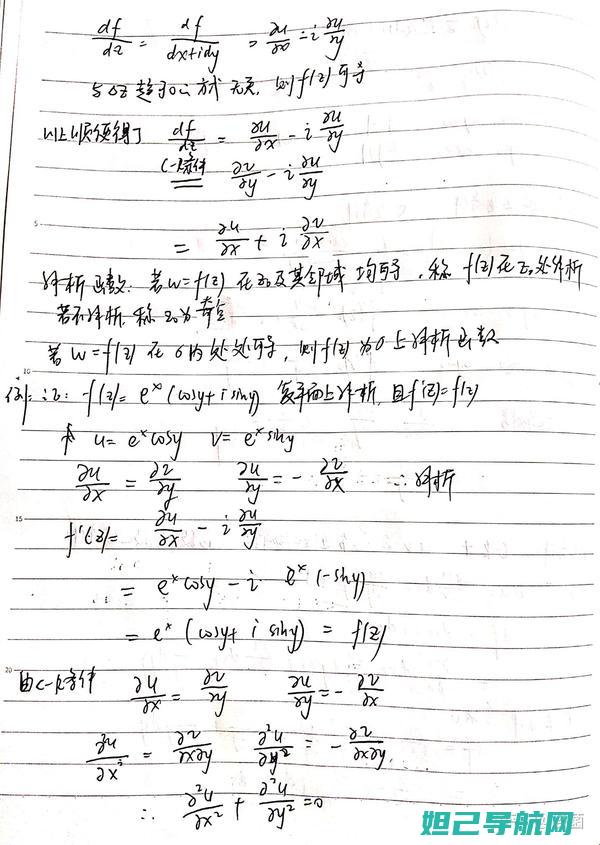 df/dz = df/(dx+idy) = ∂u/∂x - i ∂u/∂y
与Δz趋于0的方式无关, 则f(z)可导
以上顺便得了 df/dz = ∂u/∂x - i ∂u/∂y
C-R条件 ∂v/∂y - i ∂u/∂y
5
= ∂u/∂x + i ∂v/∂x
解析函数: 若w=f(z) 在z₀及其邻域 均可导, 称 f(z)在z₀处解析
若不解析, 称z₀为奇点
若 w=f(z) 在 σ内处处可导, 则f(z)为σ上解析函数
10
例: 证: f(z)= eˣ(cosy+isiny) 复平面上解析, 且f'(z)=f(z)
u= eˣcosy v= eˣsiny
∂u/∂x = ∂v/∂y ∂u/∂y = - ∂v/∂x ∴解析
15
f'(z)= ∂u/∂x - i ∂u/∂y
= eˣcosy - i eˣ(-siny)
= eˣ (cosy+ i siny) = f(z)
20
由C-R条件 ∂u/∂x = ∂v/∂y ∂u/∂y = - ∂v/∂x
∂²u/∂x² = ∂v/∂x∂y ∂²u/∂y² = - ∂v/∂x∂y
∴ ∂²u/∂x² + ∂²u/∂y² =0
妲己导航网